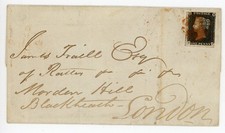 James Traill Esq
of
Morden Hill
Blackheath
London